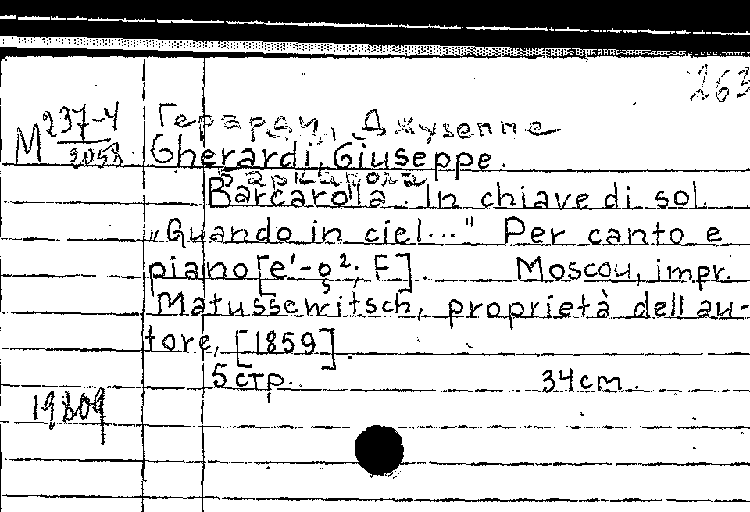 263
М 237-4
3058
Герарди, Джузеппе
Gherardi, Giuseppe.
Баркарола
Barcarola. In chiave di sol
„Quando in ciel..." Per canto e
piano [e'-g²; F]. Moscou, impr.
Matussewitsch, proprietà dell au-
tore, [1859].
5 стр. 34 cm.
19809